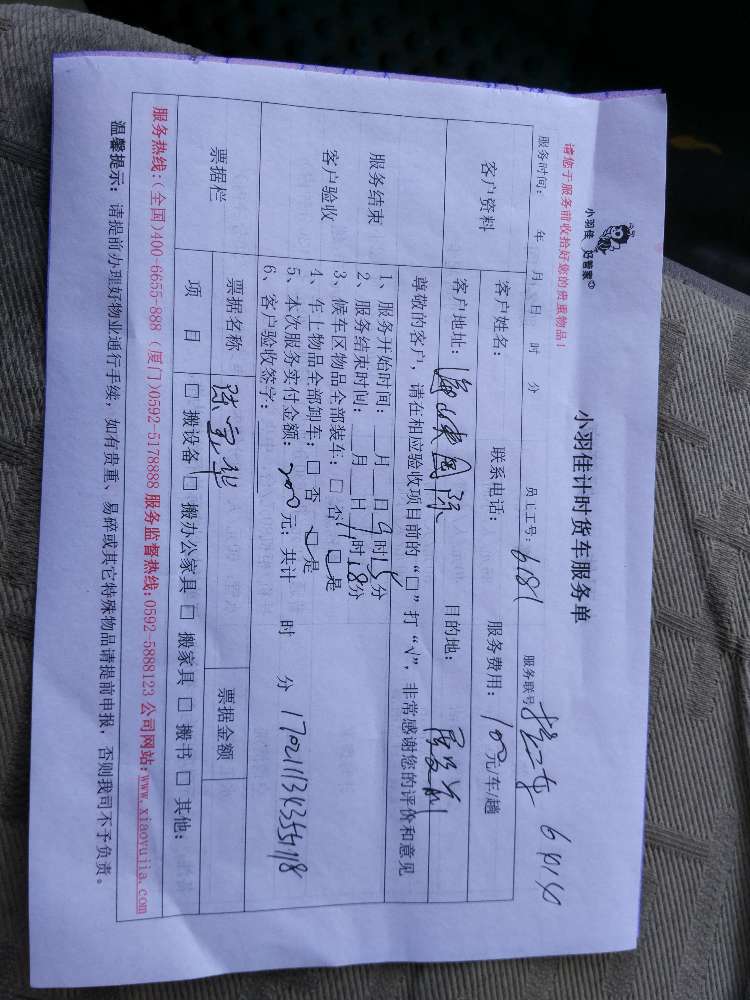 小羽佳 好管家
小羽佳计时货车服务单
请您于服务前收拾好您的贵重物品！
服务时间： 年 月 日 时 分 员工工号：6181 服务联号
客户资料
客户姓名： 联系电话： 服务费用：100元/车/趟
客户地址：海峡国际 目的地：
尊敬的客户，请在相应验收项目前的“□”打“√”，非常感谢您的评价和意见
服务结束
客户验收
1、服务开始时间：__月__日9时15分
2、服务结束时间：__月__日11时18分
3、候车区物品全部装车：□ 否 □ 是
4、车上物品全部卸车：□ 否 □ 是
5、本次服务实付金额：200元；共计 时 分
6、客户验收签字：
票据栏
票据名称 票据金额
项 目 □ 搬设备 □ 搬办公家具 □ 搬家具 □ 搬书 □ 其他：
服务热线：(全国)400-6655-888 (厦门)0592-5178888 服务监督热线：0592-5888123 公司网站：www.xiaoyujia.com
温馨提示：请提前办理好物业通行手续，如有贵重、易碎或其它特殊物品请提前申报，否则我司不予负责。